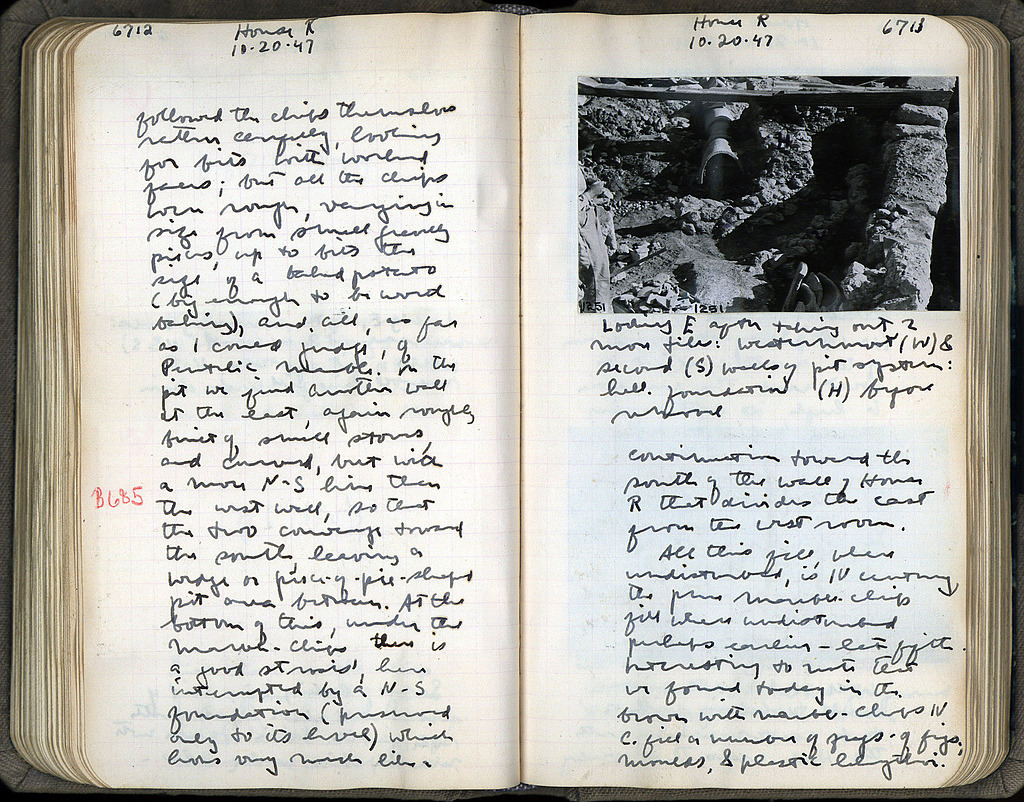 6712
House R
10.20.47
followed the chips themselves
rather carefully, looking
for bits with worked
faces; but all the chips
were rough, varying in
size from small gravelly
pieces, up to bits the
size of a baked potato
(big enough to be worth
baking), and all, as far
as I could judge, of
Pentelic marble. In the
pit we find another wall
at the east, again roughly
built of small stones,
and curved, but with
a more N-S line than
B685
the west wall, so that
the two converge toward
the south, leaving a
wedge or piece-of-pie-shaped
pit area between. At the
bottom of this, under the
marble-chips there is
a good stroses, here
interrupted by a N-S
foundation (preserved
only to its level) which
looks very much like
6713
House R
10.20.47
1251
1251
Looking E after taking out 2
more tiles: westernmost (W) &
second (S) walls of pit system:
hell. foundation (H) before
removal
continuation toward the
south of the wall of House
R that divides the east
from the west room.
All this fill, where
undisturbed, is IV century
the pure marble-chip
fill where undisturbed
perhaps earlier - late fifth.
Interesting to note that
we found today in the
brown with marble-chips IV
C. fill a number of frags. of figs,
moulds, & plastic lekythoi.